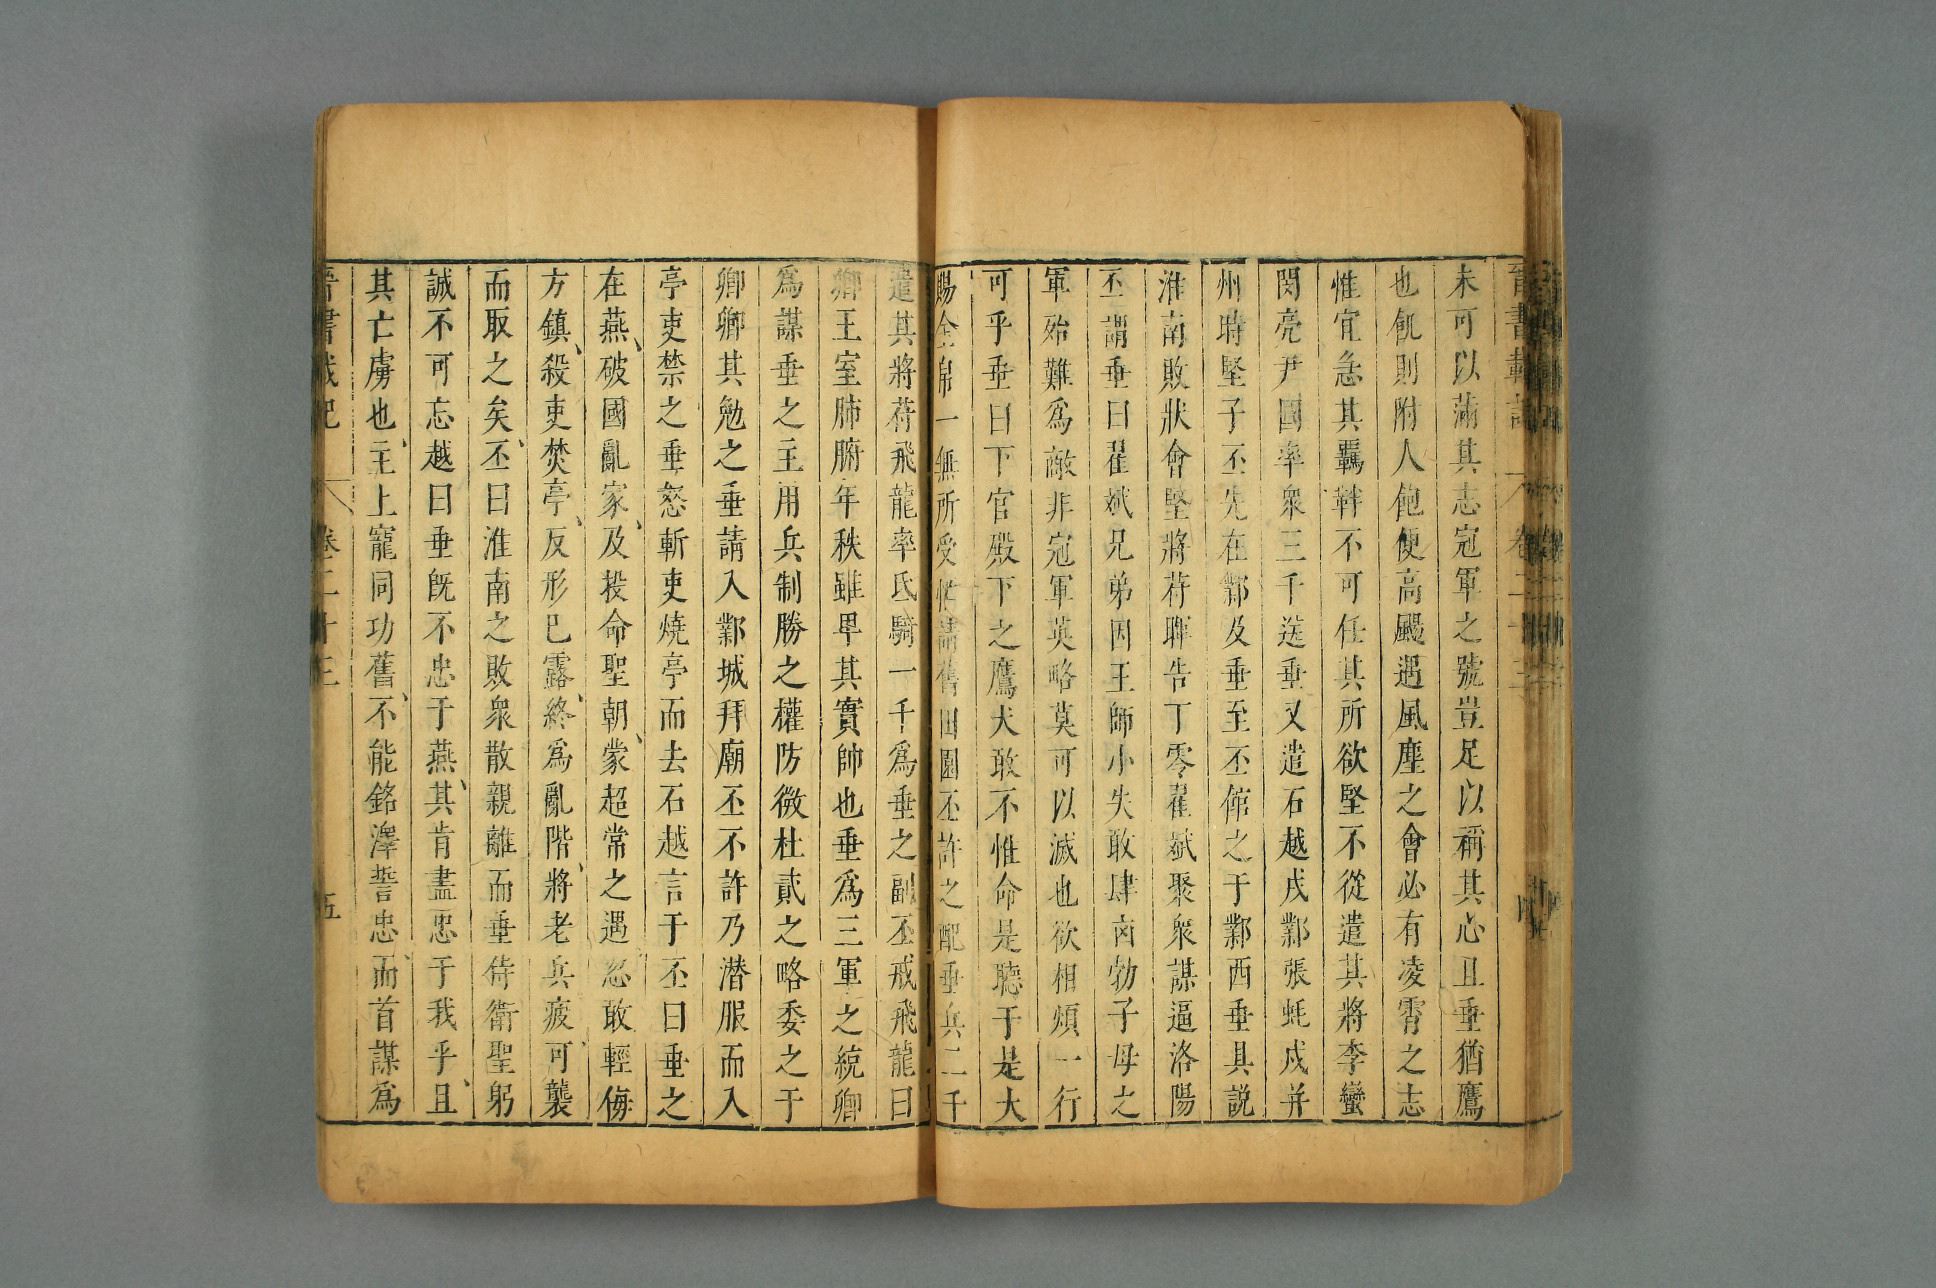 晉書載記 卷二十三 四
未可以滿其志冠軍之號豈足以稱其心且垂猶鷹
也飢則附人飽便高颺遇風塵之會必有凌霄之志
惟宜急其羈靽不可任其所欲堅不從遣其將李蠻
閔亮尹國率衆三千送垂又遣石越戍鄴張蚝戍并
州時堅子丕先在鄴及垂至丕館之于鄴西垂具說
淮南敗狀會堅將苻暉告丁零翟斌聚衆謀逼洛陽
丕謂垂曰翟斌兄弟因王師小失敢肆凶勃子母之
軍殆難爲敵非冠軍英略莫可以滅也欲相煩一行
可乎垂曰下官殿下之鷹犬敢不惟命是聽于是大
賜金帛一無所受惟請舊田園丕許之配垂兵二千
遣其將苻飛龍率氐騎一千爲垂之副丕戒飛龍曰
卿王室肺腑年秩雖卑其實帥也垂爲三軍之統卿
爲謀垂之主用兵制勝之權防微杜貳之略委之于
卿卿其勉之垂請入鄴城拜廟丕不許乃潜服而入
亭吏禁之垂怒斬吏燒亭而去石越言于丕曰垂之
在燕、破國亂家、及投命聖朝、蒙超常之遇忽敢輕侮
方鎮、殺吏焚亭、反形已露、終爲亂階、將老兵疲、可襲
而取之矣、丕曰淮南之敗衆散親離而垂侍衛聖躬
誠不可忘越曰垂旣不忠于燕、其肯盡忠于我乎、且
其亡虜也、主上寵同功舊、不能銘澤誓忠、而首謀爲
晉書載記 卷二十三 五